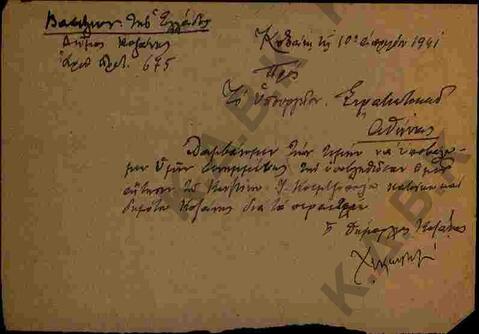 Βασίλειον της Ελλάδος
Δήμος Κοζάνης
Αριθ. Πρωτ. 675
Κοζάνη τη 10η Απριλίου 1941
Προς
Το Υπουργείον Στρατιωτικών
Αθήνας
Λαμβάνομεν την τιμήν να υποβάλω-
μεν Υμίν συνημμένως την
αίτησιν του κατοίκου και
δημότου Κοζάνης δια τα περαιτέρω
Ο Δήμαρχος Κοζάνης
Κ.Δ.Β.Κ